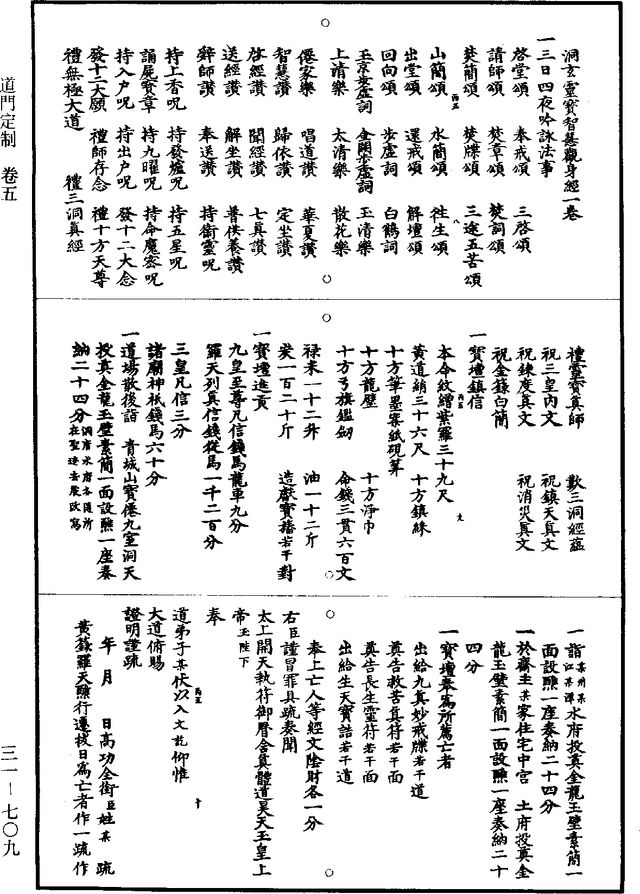 洞玄靈寶智慧觀身經一卷
一三日四夜吟詠法事
啓堂頌 奉戒頌 三啓頌
請師頌 焚章頌 焚詞頌
焚簡頌 焚牒頌 三途五苦頌
山簡頌 水簡頌 往生頌
出堂頌 還戒頌 解壇頌
回向頌 步虛詞 白鶴詞
玉京步虛詞 金闕步虛詞 玉清樂
上清樂 太清樂 散花樂
僊家樂 唱道讚 華夏讚
智慧讚 歸依讚 定坐讚
啓經讚 開經讚 七真讚
送經讚 解坐讚 普供養讚
辭師讚 奉送讚 持衛靈呪
持上香呪 持發爐呪 持五星呪
誦屍寶章 持九曜呪 持命魔密呪
持入戶呪 持出戶呪 發十二大念
發十二大願 禮師存念 禮十方天尊
禮無極大道 禮三洞真經
禮靈寶真師 歎三洞經蘊
祝三皇內文 祝鎮天真文
祝鍊度真文 祝消災真文
祝金籙白簡
一寶壇鎮信
本命紋繒紫羅三十九尺
黃道絹三十六尺 十方鎮綵
十方筆墨案紙硯筭
十方龍璧 十方淨巾
十方弓旗鑑劒 命錢三貫六百文
祿米一十二升 油一十二斤
炭一百二十斤 造獻寶旛若干對
一寶壇進貢
九皇至尊凡信錢馬龍車九分
羅天列真信錢從馬一千二百分
三皇凡信三分
諸廟神祇錢馬六十分
一道場散後詣 青城山寶僊九室洞天
投真金龍玉璧素簡一面設醮一座奏
納二十四分
一詣某州某江某潭水府投真金龍玉璧素簡一
面設醮一座奏納二十四分
一於齋主某家住宅中宮 土府投真金
龍玉璧素簡一面設醮一座奏納二十
四分
一寶壇奉爲所薦亡者
出給九真妙戒牒若干道
真告救苦真符若干面
真告長生靈符若干面
出給生天寶誥若干道
奉上亡人等經文陰財各一分
右臣謹冒罪具疏奏聞
太上開天執符御曆含真體道昊天玉皇上
帝玉陛下
奉
道弟子某伏以入文訖仰惟
大道俯賜
證明謹疏
年 月 日高功全銜臣姓某 疏
黃籙羅天醮行遷拔日爲亡者作一疏作
道門定制 卷五
三一—七〇九